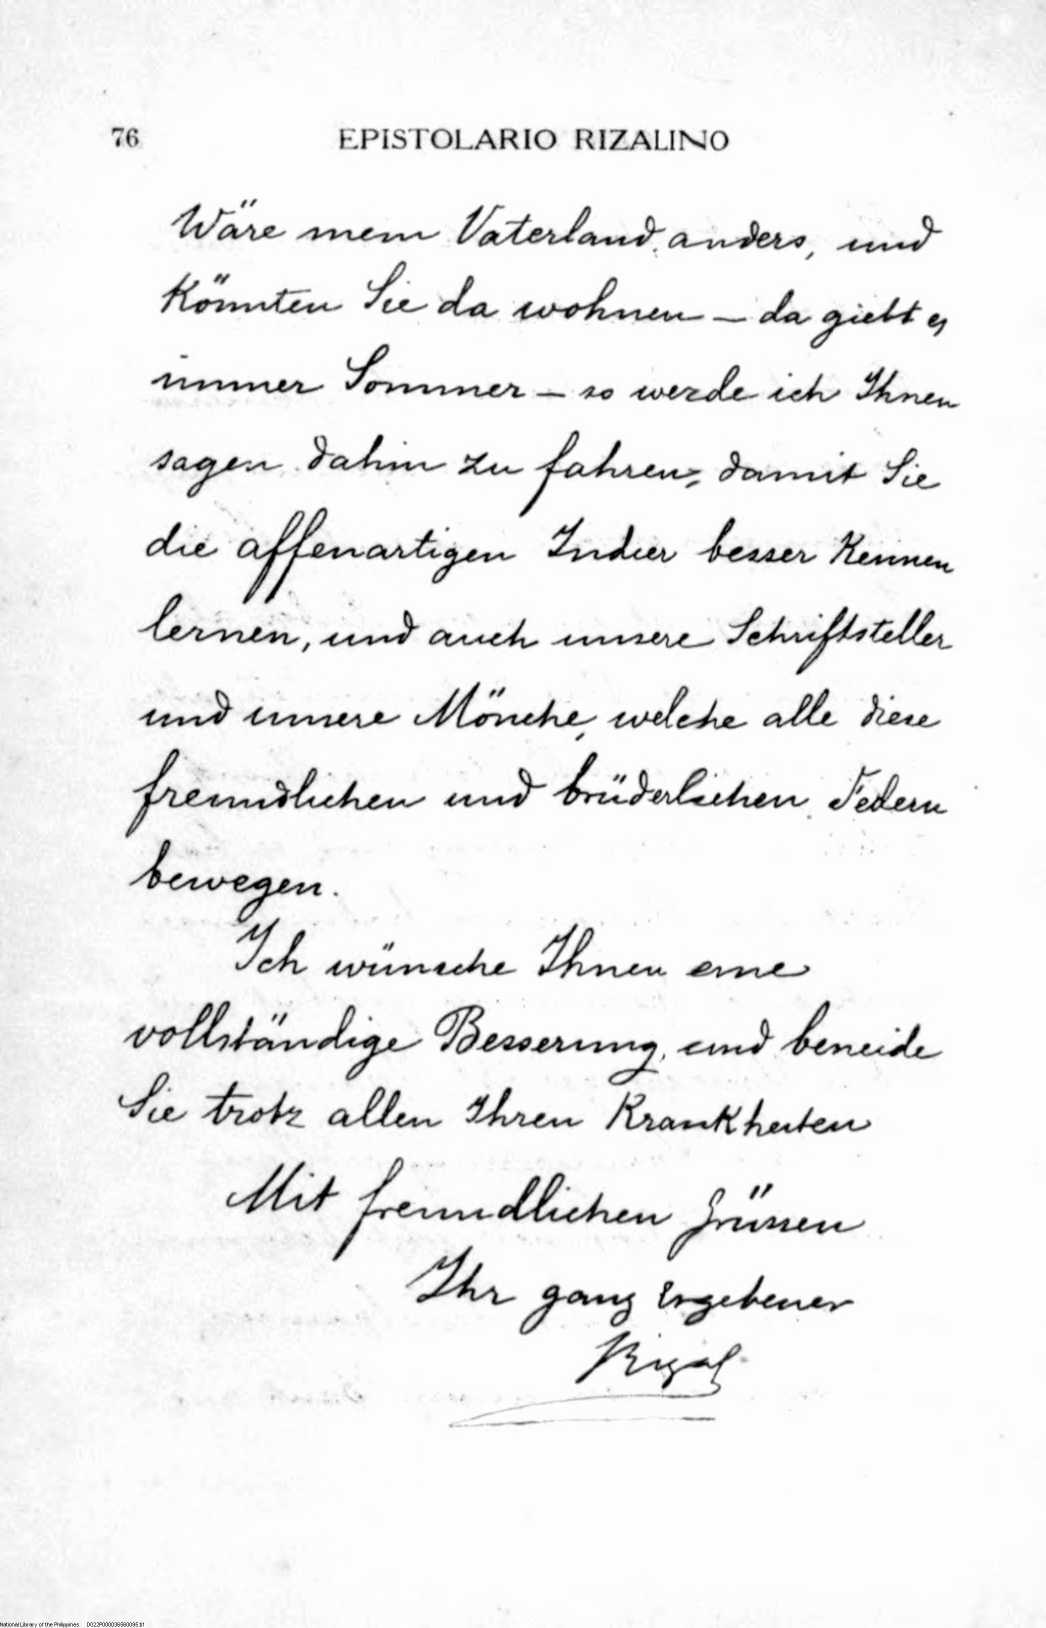 76 EPISTOLARIO RIZALINO
Wäre mein Vaterland anders, und
Könnten Sie da wohnen – da giebt es
immer Sommer – so werde ich Ihnen
sagen dahin zu fahren, damit Sie
die affenartigen Indier besser Kennen
lernen, und auch unsere Schriftsteller
und unsere Mönche, welche alle diese
freundlichen und brüderlichen Federn
bewegen.
Ich wünsche Ihnen eine
vollständige Besserung, und beneide
Sie trotz allen Ihren Krankheiten
Mit freundlichen Grüssen
Ihr ganz Ergebener
Rizal
National Library of the Philippines